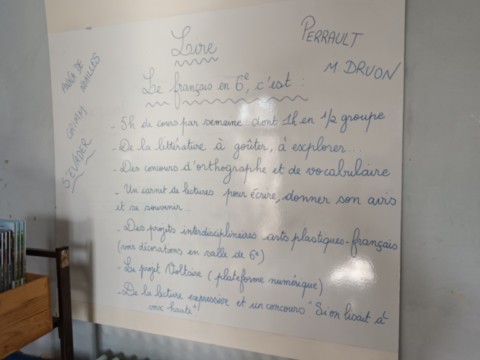 Lire
PERRAULT
M. DRUON
ANNA DE
NOAILLES
S'EVADER
Le français en 6e, c'est :
- 5h de cours par semaine dont 1h en 1/2 groupe
- De la littérature à goûter, à explorer...
- Des concours d'orthographe et de vocabulaire
- Un carnet de lectures pour écrire, donner son avis
et se souvenir...
- Des projets interdisciplinaires arts plastiques-français
(nos décorations en salle de 6e)
- Le projet Voltaire (plateforme numérique)
- De la lecture expressive et un concours "Si on lisait à
voix haute"